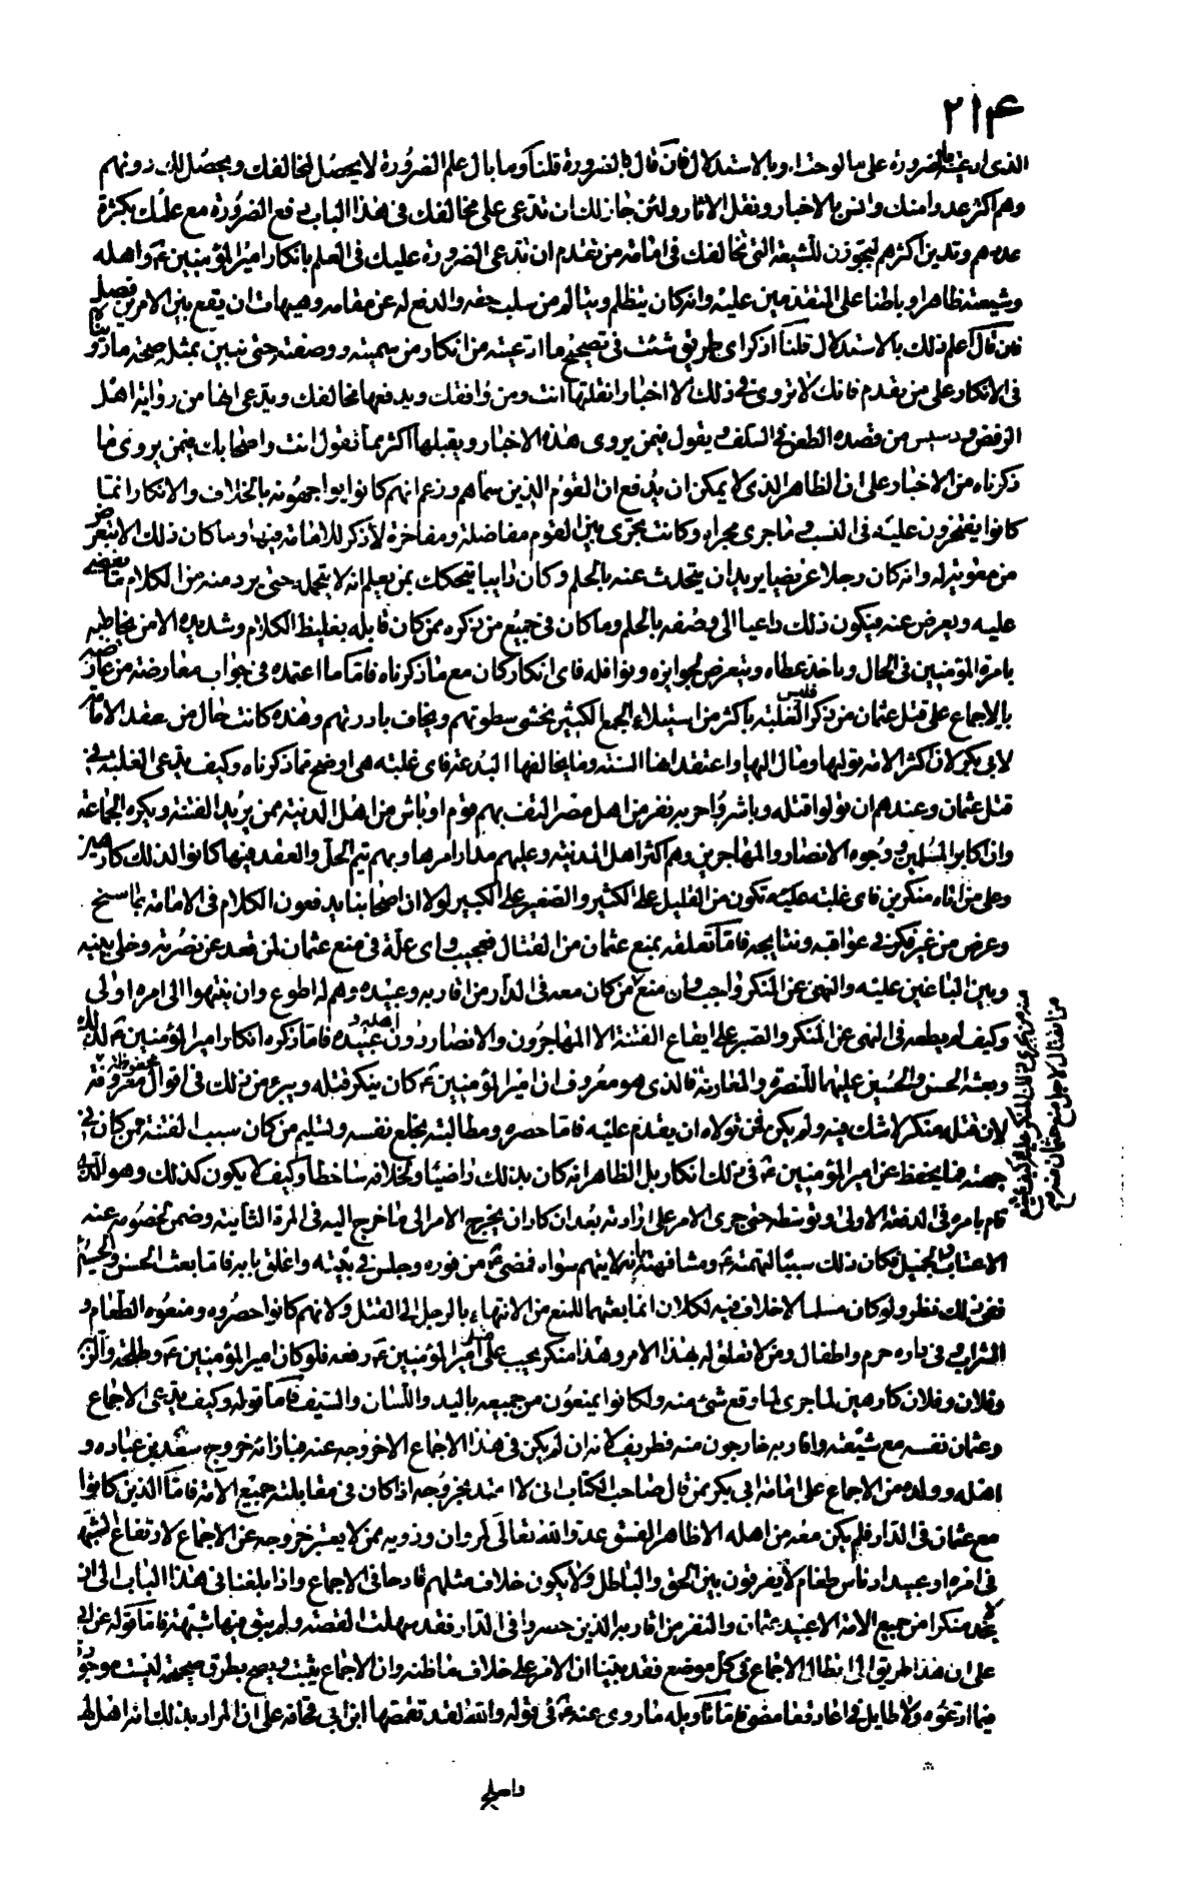 ٢١۴
الذى ادعيت الضرورة على مالوحت به وبالاستدلال فان قال بالضرورة قلنا وما بال علم الضرورة لا يحصل لمخالفك ويحصل لك دونهم
وهم اكثر عددا منك وانس بالاخبار ونقل الاثار ولئن جاز لك ان تدعى على مخالفك فى هذا الباب دفع الضرورة مع علمك بكثرة
عددهم وتدين اكثرهم ليجوزن للشيعة التى تخالفك فى امامة من تقدم ان تدعى الضرورة عليك فى العلم بانكار امير المؤمنين ع واهله
وشيعته ظاهرا وباطنا على المتقدمين عليه وانه كان يتظلم ويتألم من سلب حقه والدفع له عن مقامه وهيهات ان يقع بين الامرين فصل
فان قال اعلم ذلك بالاستدلال قلنا اذكر اى طريق شئت فى تصحيح ما ادعيته من انكار من سميته ووصفته حتى نبين بمثله صحة ما رويناه
فى الانكار على من تقدم فانك لا تروى فى ذلك الا اخبارا نقلتها انت ومن وافقك ويدفعها مخالفك ويدعى انها من رواية اهل
الرفض ودسيس من قصده الطعن فى السلف ويقول فيمن يروى هذه الاخبار ويقبلها اكثر مما تقول انت واصحابك فيمن يروى ما
ذكرناه من الاخبار على ان الظاهر الذى لا يمكن ان يدفع ان القوم الذين سماهم وزعم انهم كانوا يواجهونه بالخلاف والانكار انما
كانوا يفتخرون عليه فى النسب وما جرى مجراه وكانت تجرى بين القوم مفاضلة ومفاخرة لا ذكر للامامة فيها وما كان ذلك الا بتعرض
من معوية له وانه كان رجلا عريضا يريد ان يتحدث عنه بالحلم وكان دابا يتحكك بمن يعلم انه لا يتحمله حتى يرد منه من الكلام ما يغضى
عليه ويعرض عنه فيكون ذلك داعيا الى وصفه بالحلم وما كان فى جميع من ذكره ممن كان قابله بغليظ الكلام وشديده الا من يخاطبه
بامرة المؤمنين فى الحال وياخذ عطاه ويتعرض لجوايزه ونوافله فاى انكار كان مع ما ذكرناه فاما ما اعتمده فى جواب معارضة من عارضه
بالاجماع على قتل عثمان من ذكر الغلبة فليس باكثر من استيلاء الجمع الكثير يخشى سطوتهم ويخاف بادرتهم وهذه كانت حال من عقد الامامة
لابى بكر لان اكثر الامة تولها ومال اليها واعتقد انها السنة وما يخالفها البدعة فاى غلبة هى اوضح مما ذكرناه وكيف يدعى الغلبة فى
قتل عثمان وعندهم ان تولوا قتله وباشروا حربه نفر من اهل مصر التف بهم قوم اوباش من اهل المدينة ممن يريد الفتنة ويكره الجماعة
وان اكابر المسلمين ووجوه الانصار والمهاجرين وهم اكثر اهل المدينة وعليهم مدار امرها وبهم يتم الحل والعقد فيها كانوا لذلك كارهين
وعلى من اتاه منكرين فاى غلبة عليه تكون من القليل على الكثير والصغير على الكبير لولا ان اصحابنا يدفعون الكلام فى الامامة بما سنح
وعرض من غير فكر فى عواقبه ونتايجه فاما تعلقه بمنع عثمان من القتال فعجيب واى علة فى منع عثمان لمن قعد عن نصرته وخلى بينه
وبين الباغين عليه والنهى عن المنكر واجب وان منع من كان معه فى الدار من اقاربه وعبيده وهم له اطوع وان ينتهوا الى امره اولى
وكيف لم يطعه فى النهى عن المنكر والصبر على ايقاع الفتنة الا المهاجرون والانصار دون اهله وعبيده فاما ذكره انكار امير المؤمنين ع لذلك
وبعثه الحسن والحسين عليهما للنصرة والمعاونة فالذى هو معروف ان امير المؤمنين ع كان ينكر قتله ويبرء من ذلك فى اقوال محفوظة معروفة
لان قتله منكر لا شك فيه ولم يكن لمن تولاه ان يقدم عليه فاما حصره ومطالبته بخلع نفسه وتسليم من كان سبب الفتنة ممن كان فى
جهته فما يحفظ عن امير المؤمنين ع فى ذلك انكار بل الظاهر انه كان بذلك راضيا وبخلافه ساخطا وكيف لا يكون كذلك وهو الذى
قام بامره فى الدفعة الاولى وتوسطه حتى جرى الامر على ارادته بعد ان كاد ان يخرج الامر الى ما خرج اليه فى المرة الثانية وضمن لخصومه عنه
الاعتاب الجميل فكان ذلك سببا لتهمته ع ومشافهته بانه لا يتهم سواه فمضى ع من فوره وجلس فى بيته واغلق بابه فاما بعث الحسن والحسين
ففى ذلك نظر ولو كان مسلما لا خلاف فيه لكان انما بعثهما للمنع من الانتهاء بالرجل الى القتل ولانهم كانوا حصروه ومنعوه الطعام و
الشراب وفى داره حرم واطفال ومن لا تعلق له بهذا الامر وهذا منكر يجب على مثل امير المؤمنين ع رفعه فلو كان امير المؤمنين ع وطلحة والزبير
وفلان وفلان كارهين لما جرى لما وقع شئ منه ولكانوا يمنعون من جميعه باليد واللسان والسيف فاما قوله وكيف يدعى الاجماع
وعثمان نفسه مع شيعته واقاربه خارجون منه فطريف لانه ان لم يكن فى هذا الاجماع الا خروجه عنه فبازائه خروج سعد بن عباده و
اهله وولده من الاجماع على امامة ابى بكر ممن قال صاحب الكتاب انى لا اعتد بخروجه اذا كان فى مقابلته جميع الامة فاما الذين كانوا
مع عثمان فى الدار فلم يكن معه من اهله الا ظاهر الفسق عدو الله تعالى كمروان وذويه ممن لا يعتبر خروجه عن الاجماع لارتفاع الشبهة
فى امره او عبيد ارناس طغام لا يفرقون بين الحق والباطل ولا يكون خلاف مثلهم قادحا فى الاجماع واذا بلغنا فى هذا الباب الى ان
لا نجد منكرا من جميع الامة الا عبيد عثمان والنفر من اقاربه الذين حصروا فى الدار فقد سهلت القصة ولم يبق فيها شبهة فاما قوله
على ان هذا طريق الى ابطال الاجماع فى كل موضع فقد بينا ان الامر على خلاف ما ظنه وان الاجماع يثبت ويصح بطرق صحيحة ليست موجودة
فيما ادعوه ولا طايل فى اعادة ما مضى فاما تاويله ما روى عنه ع فى قوله والله لقد تقمصها ابن ابى قحافه على ان المراد بذلك انه اهل لها
واصلح